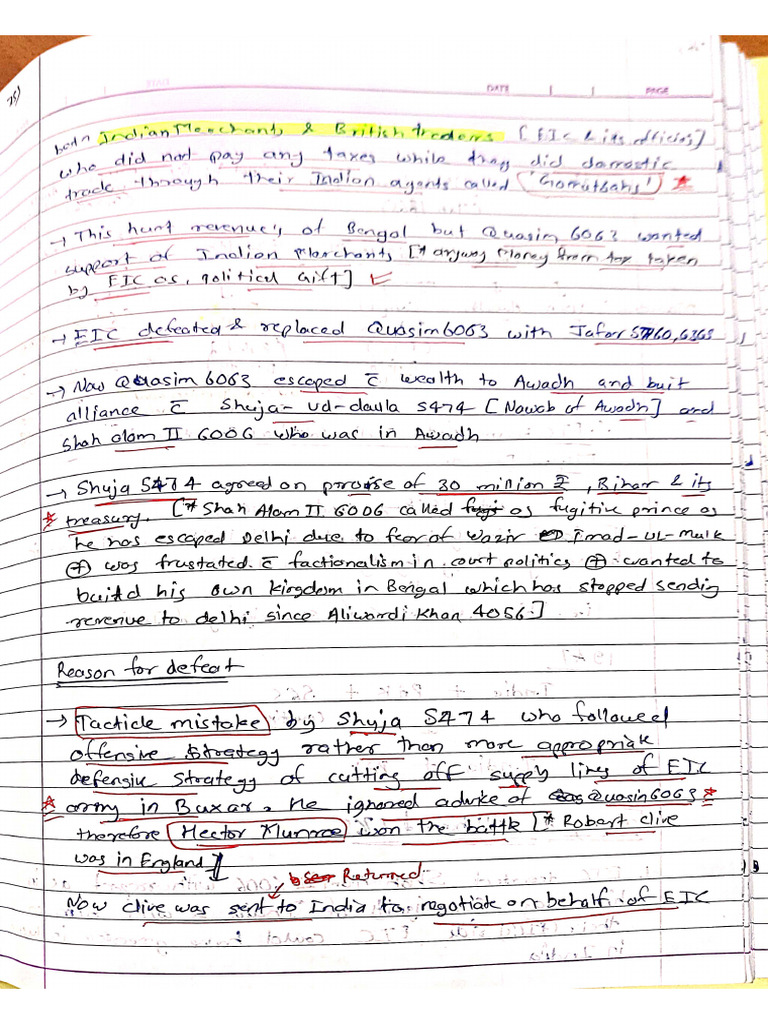 75)
DATE
PAGE
both Indian Merchants & British traders [EIC & its officios]
who did not pay any taxes while they did domestic
trade through their Indian agents called 'Gomutsahs'
→ This hunt revenue's of Bengal but Quasim 6063 wanted
support of Indian Merchants [* arjung Money from tax taken
by EIC as political Gift]
→ EIC defeated & replaced Quasim 6063 with Jafar 5760, 6365
→ Now Quasim 6063 escaped c̄ wealth to Awadh and buit
alliance c̄ Shuja-ud-daula 5474 [Nawab of Awadh] and
Shah Alam II 6006 who was in Awadh
→ Shuja 5474 agreed on promise of 30 million ₹, Bihar & its
treasury. [* Shah Alam II 6006 called as fugitive prince as
he has escaped Delhi due to fear of Wazir Imad-UL-Mulk
⊕ was frustated c̄ factionalism in court politics ⊕ wanted to
build his own kingdom in Bengal which has stopped sending
revenue to delhi since Aliwardi Khan 4056.]
Reason for defeat
→ Tacticle mistake by Shuja 5474 who followed
offensive strategy rather than more appropriate
defensive strategy of cutting off supply lines of EIC
army in Buxar. He ignored advice of Quasin 6063
therefore Hector Munroe won the battle [* Robert clive
was in England]
Returned
Now clive was sent to India to negotiate on behalf of EIC